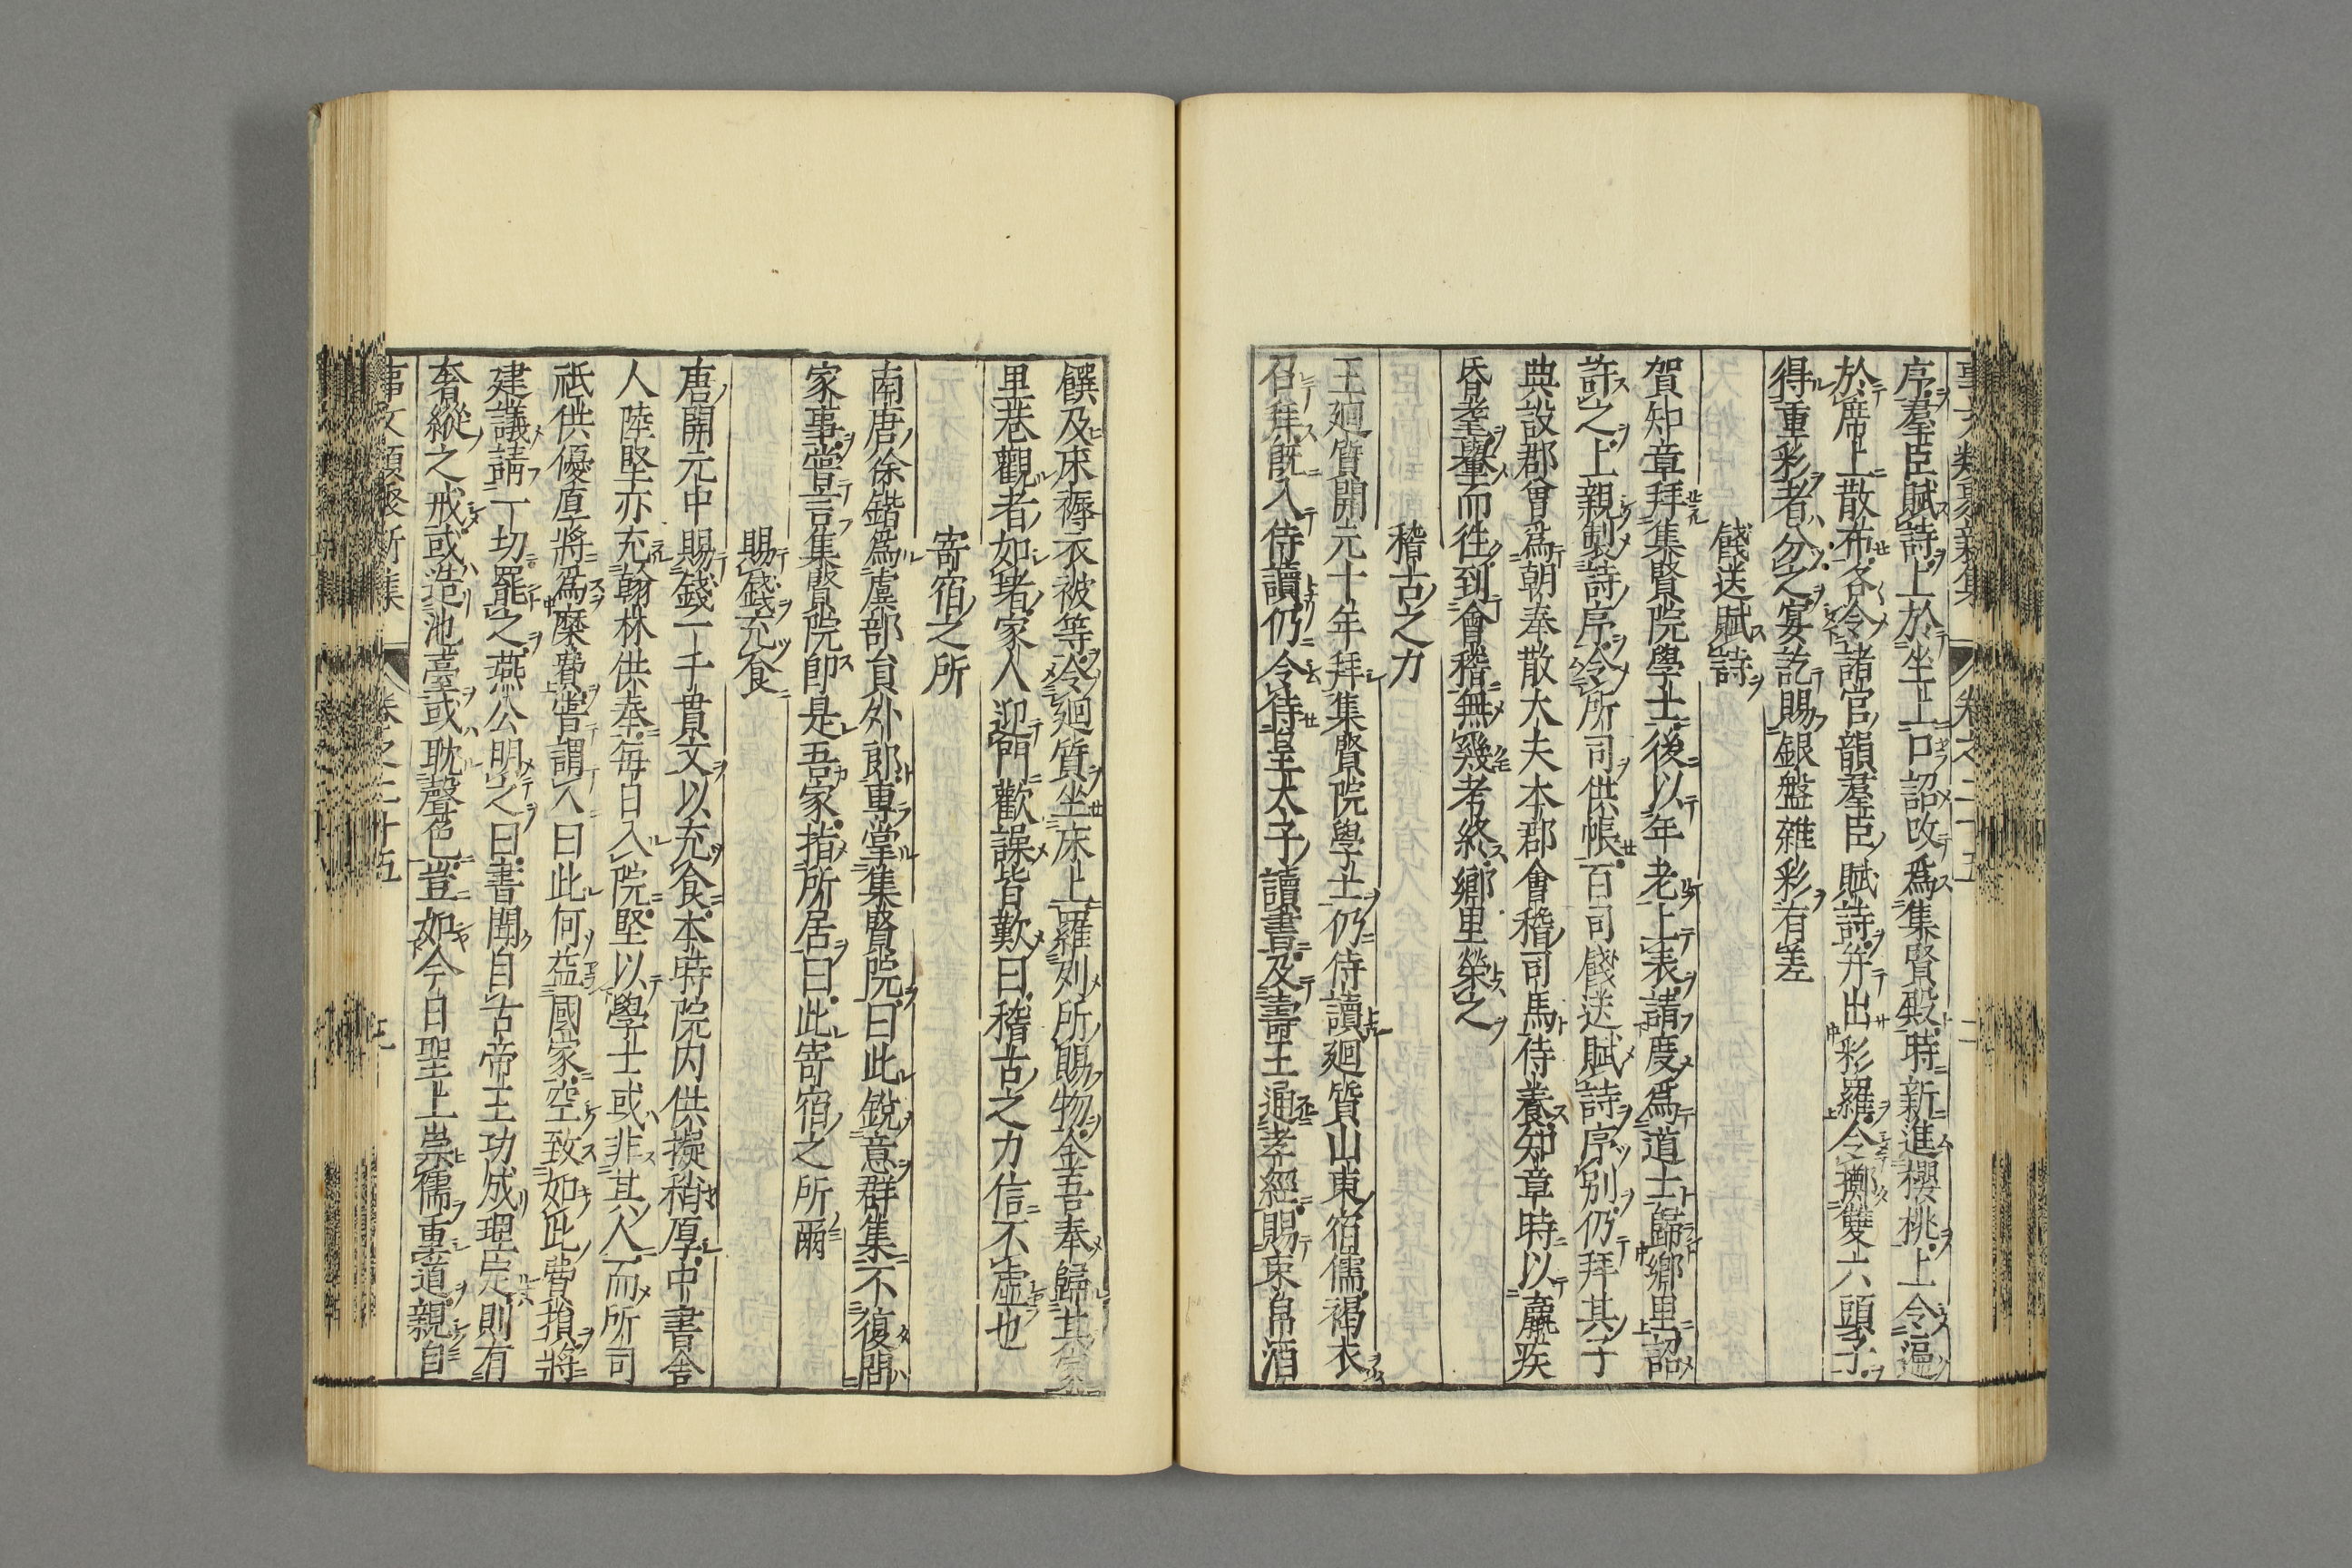 事文類聚新集 卷之二十五 二
序羣臣賦詩上於坐上口詔改爲集賢殿時新進櫻桃上令遍
於席上散布各令諸官韻羣臣賦詩并出彩羅令擲雙六頭子
得重彩者分之宴訖賜銀盤雜彩有差
餞送賦詩
賀知章拜集賢院學士後以年老上表請度爲道士歸鄉里詔
許之上親製詩序令所司供帳百司餞送賦詩序別仍拜其子
典設郡曾爲朝奉散大夫本郡會稽司馬侍養知章時以麤疾
昏耄轝而徃到會稽無幾考終鄉里榮之
稽古之力
王廻質開元十年拜集賢院學士仍侍讀廻質山東宿儒褐衣
召拜既入侍讀仍令侍皇太子讀書及壽王通孝經賜束帛酒
饌及床褥衣被等令廻質坐床上羅列所賜物金吾奉歸其家
里巷觀者如堵家人迎門歡譟皆歎曰稽古之力信不虛也
寄宿之所
南唐徐鍇爲虞部員外郎專掌集賢院曰此銳意群集不復問
家事嘗言集賢院即是吾家指所居曰此寄宿之所爾
賜錢充食
唐開元中賜錢一千貫文以充食本時院内供擬稍厚中書舍
人陸堅亦充翰林供奉每日入院堅以學士或非其人而所司
祗供優厚將爲糜費嘗謂人曰此何益國家空致如此費損將
建議請一切罷之燕公明之曰書聞自古帝王功成理定則有
奢縱之戒或造池臺或耽聲色豈如今日聖上崇儒重道親自
事文類聚新集 卷之二十五 三